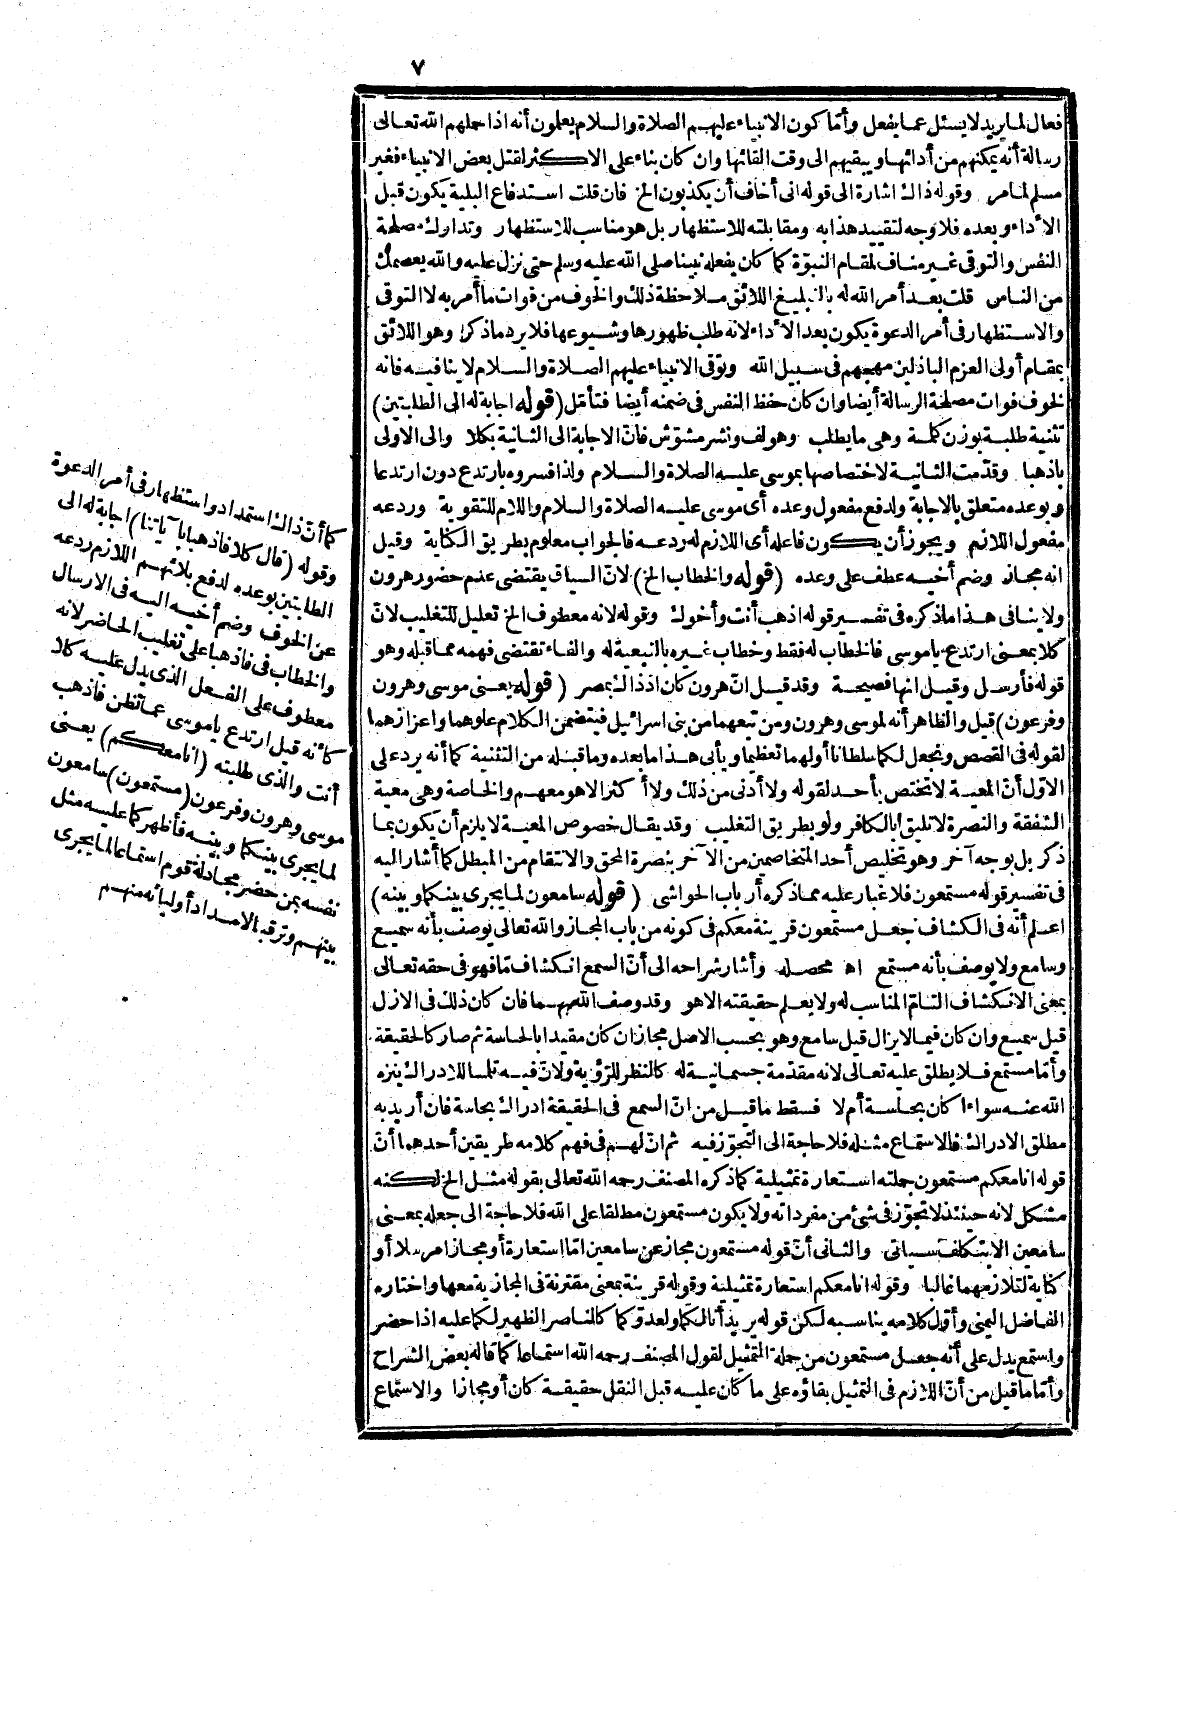 ٧
فعال لما يريد لا يسئل عما يفعل وأما كون الانبياء عليهم الصلاة والسلام يعلمون أنه اذا حملهم الله تعالى
رسالة أنه يمكنهم من أدائها ويبقيهم الى وقت القائها وان كان بناء على الاكثر لقتل بعض الانبياء فغير
مسلم لما مر وقوله ذاك اشارة الى قوله انى أخاف أن يكذبون الخ فان قلت استدفاع البلية يكون قبل
الأداء وبعده فلا وجه لتقييد هذا به ومقابلته للاستظهار بل هو مناسب للاستظهار وتدارك مصلحة
النفس والتوقى غير مناف لمقام النبوّة كما كان يفعله نبينا صلى الله عليه وسلم حتى نزل عليه والله يعصمك
من الناس قلت بعد أمر الله له بالتبليغ اللائق ملاحظة ذلك والخوف من فوات ما أمر به لا التوقى
والاستظهار فى أمر الدعوة يكون بعد الأداء لانه طلب ظهورها وشيوعها فلا يرد ما ذكر وهو اللائق
بمقام أولى العزم الباذلين مهجهم فى سبيل الله وتوقى الانبياء عليهم الصلاة والسلام لا ينافيه فانه
لخوف فوات مصلحة الرسالة أيضا وان كان حفظ النفس فى ضمنه أيضا فتأمل (قوله اجابة له الى الطلبتين)
تثنية طلبة بوزن كلمة وهى ما يطلب وهو لف ونشر مشوّش فانّ الاجابة الى الثانية بكلا والى الاولى
باذهبا وقدّمت الثانية لاختصاصها بموسى عليه الصلاة والسلام ولذا فسروه بارتدع دون ارتدعا
وبوعده متعلق بالاجابة ولدفع مفعول وعده أى موسى عليه الصلاة والسلام واللام للتقوية وردعه
مفعول اللازم ويجوز أن يكون فاعله أى اللازم له ردعه فالجواب معلوم بطريق الكناية وقيل
انه مجاز وضم أخيه عطف على وعده (قوله والخطاب الخ) لانّ السياق يقتضى عدم حضور هرون
ولا ينافى هذا ما ذكره فى تفسير قوله اذهب أنت وأخوك وقوله لانه معطوف الخ تعليل للتغليب لانّ
كلا بمعنى ارتدع ياموسى فالخطاب له فقط وخطاب غيره بالتبعية له والفاء تقتضى فهمه مما قبله وهو
قوله فأرسل وقيل انها فصيحة وقد قيل انّ هرون كان اذ ذاك بمصر (قوله يعنى موسى وهرون
وفرعون) قيل والظاهر أنه لموسى وهرون ومن تبعهما من بنى اسرائيل فيتضمن الكلام علوهما واعزازهما
لقوله فى القصص ونجعل لكما سلطانا أولهما تعظيما ويأبى هذا ما بعده وما قبله من التثنية كما أنه يرد على
الاوّل أنّ المعية لا تختص بأحد لقوله ولا أدنى من ذلك ولا أكثر الا هو معهم والخاصة وهى معية
الشفقة والنصرة لا تليق بالكافر ولو بطريق التغليب وقد يقال خصوص المعية لا يلزم أن يكون بما
ذكر بل بوجه آخر وهو تخليص أحد المتخاصمين من الآخر بنصرة المحق والانتقام من المبطل كما أشار اليه
فى تفسير قوله مستمعون فلا غبار عليه مما ذكره أرباب الحواشى (قوله سامعون لما يجرى بينكما وبينه)
اعلم أنه فى الكشاف جعل مستمعون قرينة معكم فى كونه من باب المجاز والله تعالى يوصف بأنه سميع
وسامع ولا يوصف بأنه مستمع اه محصله وأشار شراحه الى أنّ السمع انكشاف ما فهو فى حقه تعالى
بمعنى الانكشاف التامّ المناسب له ولا يعلم حقيقته الا هو وقد وصف الله بهما فان كان ذلك فى الازل
قيل سميع وان كان فيما لا يزال قيل سامع وهو بحسب الاصل مجاز ان كان مقيدا بالحاسة ثم صار كالحقيقة
وأما مستمع فلا يطلق عليه تعالى لانه مقدّمة جسمانية له كالنظر للرؤية ولانّ فيه تلمسا للادراك ينزه
الله عنه سواء كان بحاسة أم لا فسقط ما قيل من انّ السمع فى الحقيقة ادراك بحاسة فان أريد به
مطلق الادراك فالاستماع مثله فلا حاجة الى التجوّز فيه ثم انّ لهم فى فهم كلامه طريقين أحدهما أنّ
قوله انا معكم مستمعون جملته استعارة تمثيلية كما ذكره المصنف رحمه الله تعالى بقوله مثل الخ لكنه
مشكل لانه حينئذ لا تجوّز فى شئ من مفرداته ولا يكون مستمعون مطلقا على الله فلا حاجة الى جعله بمعنى
سامعين الا بتكلف سيأتى والثانى أنّ قوله مستمعون مجاز عن سامعين امّا استعارة أو مجازا مرسلا أو
كناية لتلازمهما غالبا وقوله انا معكم استعارة تمثيلية وقوله قرينة بمعنى مقترنة فى المجازية معها واختاره
الفاضل اليمنى وأوّل كلامه يناسبه لكن قوله يريد أنا لكما ولعدوّكما كالناصر الظهير لكما عليه اذا حضر
واستمع يدل على أنه جعل مستمعون من جملة التمثيل لقول المصنف رحمه الله استماعا كما قاله بعض الشراح
وأمّا ما قيل من أنّ اللازم فى التمثيل بقاؤه على ما كان عليه قبل النقل حقيقة كان أو مجازا والاستماع
كما أنّ ذاك استمداد واستظهار فى أمر الدعوة
وقوله (قال كلا فاذهبا بآياتنا) اجابة له الى
الطلبتين بوعده لدفع بلائهم اللازم ردعه
عن الخوف وضم أخيه اليه فى الارسال
والخطاب فى فاذهبا على تغليب الحاضر لانه
معطوف على الفعل الذى يدل عليه كلا
كأنه قيل ارتدع ياموسى عما تظن فاذهب
أنت والذى طلبته (انا معكم) يعنى
موسى وهرون وفرعون (مستمعون) سامعون
لما يجرى بينكما وبينه فأظهركما عليه مثل
نفسه بمن حضر مجادلة قوم استماعا لما يجرى
بينهم وترقبا لامداد أوليائه منهم